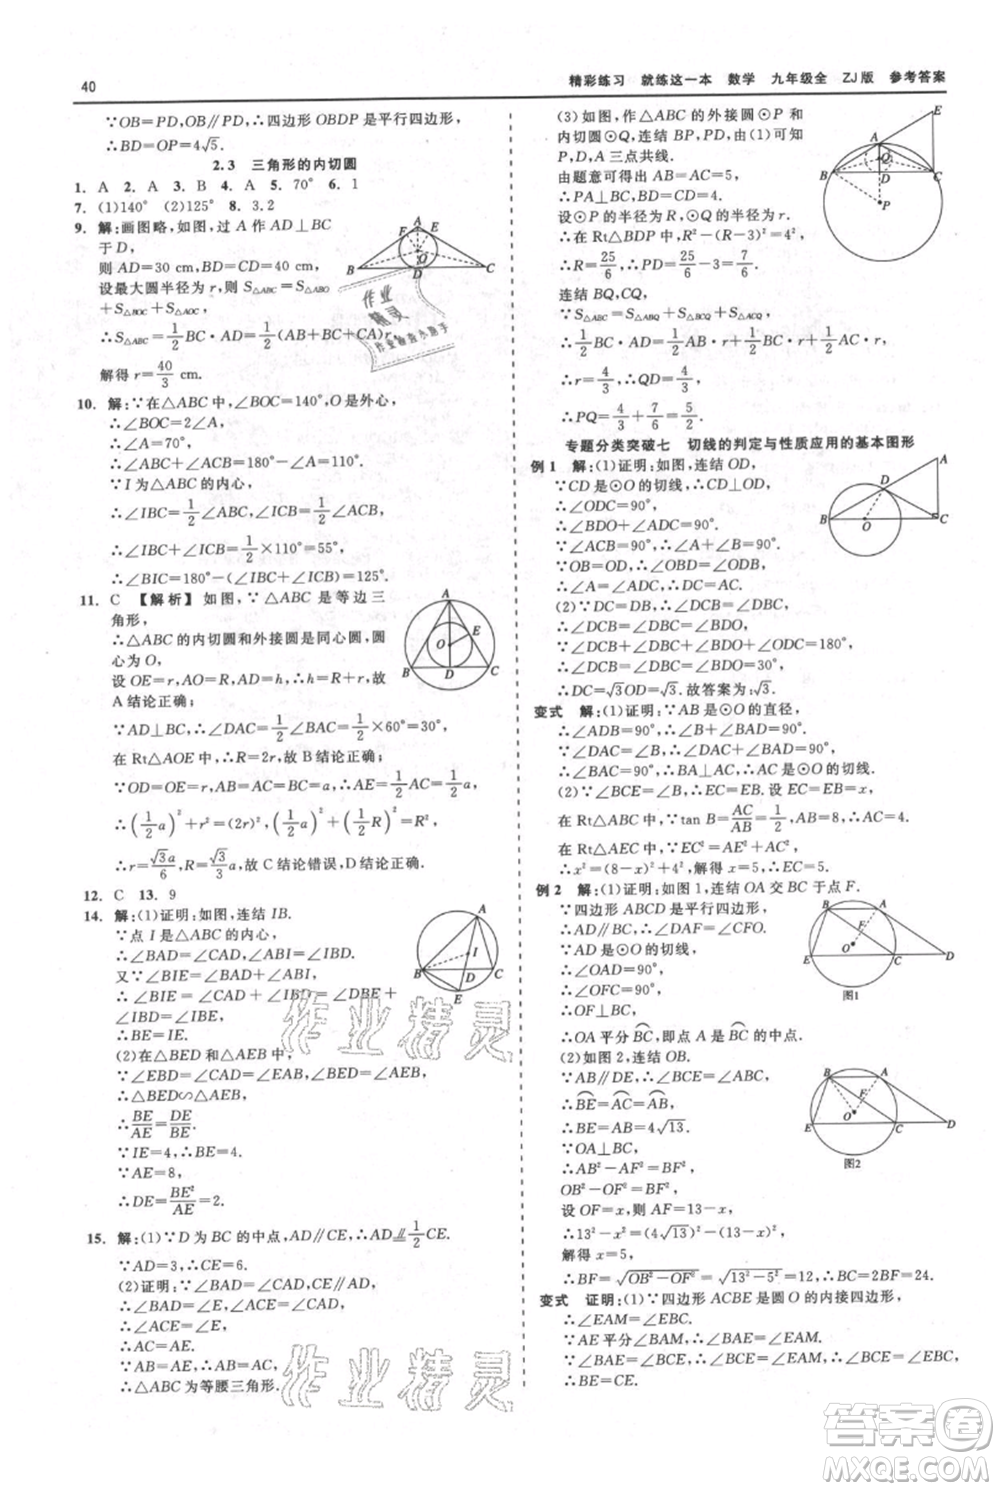 40
精彩练习 就练这一本 数学 九年级全 ZJ版 参考答案
∵OB=PD,OB∥PD,∴四边形OBDP是平行四边形,
∴BD=OP=4√5.
2.3 三角形的内切圆
1. A 2. A 3. B 4. A 5. 70° 6. 1
7. (1)140° (2)125° 8. 3.2
9. 解:画图略,如图,过A作AD⊥BC
于D,
则AD=30 cm,BD=CD=40 cm,
设最大圆半径为r,则S△ABC=S△ABO
+S△BOC+S△AOC,
∴S△ABC=1/2BC·AD=1/2(AB+BC+CA)r,
解得r=40/3 cm.
10. 解:∵在△ABC中,∠BOC=140°,O是外心,
∴∠BOC=2∠A,
∴∠A=70°,
∴∠ABC+∠ACB=180°-∠A=110°,
∵I为△ABC的内心,
∴∠IBC=1/2∠ABC,∠ICB=1/2∠ACB,
∴∠IBC+∠ICB=1/2×110°=55°,
∴∠BIC=180°-(∠IBC+∠ICB)=125°.
11. C 【解析】如图,∵△ABC是等边三
角形,
∴△ABC的内切圆和外接圆是同心圆,圆
心为O,
设OE=r,AO=R,AD=h,∴h=R+r,故
A结论正确;
∵AD⊥BC,∴∠DAC=1/2∠BAC=1/2×60°=30°,
在Rt△AOE中,∴R=2r,故B结论正确;
∵OD=OE=r,AB=AC=BC=a,∴AE=1/2AC=1/2a,
∴(1/2a)²+r²=(2r)²,(1/2a)²+(1/2R)²=R²,
∴r=√3a/6,R=√3/3a,故C结论错误,D结论正确.
12. C 13. 9
14. 解:(1)证明:如图,连结IB.
∵点I是△ABC的内心,
∴∠BAD=∠CAD,∠ABI=∠IBD.
又∵∠BIE=∠BAD+∠ABI=∠CAD+
∠IBD,∠IBE=∠CAD+∠IBD=∠DBE+
∠IBD=∠BIE,
∴BE=IE.
(2)在△BED和△AEB中,
∵∠EBD=∠CAD=∠BAD,∠BED=∠AEB,
∴△BED∽△AEB,
∴BE/AE=DE/BE.
∵IE=4,∴BE=4,
∵AE=8,
∴DE=BE²/AE=2.
15. 解:(1)∵D为BC的中点,AD∥CE,∴AD⫽1/2CE.
∵AD=3,∴CE=6.
(2)证明:∵∠BAD=∠CAD,AD∥CE,
∴∠BAD=∠E,∠CAD=∠ACE,
∴∠ACE=∠E,
∴AC=AE.
∵AB=AE,∴AB=AC,
∴△ABC为等腰三角形.
(3)如图,△ABC的外接圆⊙P和
内切圆⊙Q,连结BP,PD,由(1)可知
P,D,A三点共线.
由题意可得AB=AC=5,
∴PA⊥BC,BD=CD=4.
设⊙P的半径为R,⊙Q的半径为r.
∴在Rt△BDP中,R²-(R-3)²=4²,
∴R=25/6,∴PD=25/6-3=7/6,
连结BQ,QC,
∵S△ABC=S△ABQ+S△BCQ+S△ACQ,
∴1/2BC·AD=1/2r(AB+BC+AC),
∴r=4/3,∴QD=r=4/3,
∴PQ=4/3+7/6=5/2.
专题分类突破七 切线的判定与性质应用的基本图形
例1 解:(1)证明:如图,连结OD,
∵CD是⊙O的切线,∴CD⊥OD,
∴∠ODC=90°,
∴∠BDO+∠ADC=90°.
∵∠ACB=90°,∴∠A+∠B=90°.
∵OB=OD,∴∠OBD=∠ODB,
∴∠A=∠ADC.
(2)∵DC=DB,∴∠DCB=∠DBC,
∴∠DCB=∠DBC=∠BDO.
∵∠DCB+∠DBC+∠BDO+∠ODC=180°,
∴∠DCB=∠DBC=∠BDO=30°.
∴DC=√3OD=√3.故答案为:√3.
变式 解:(1)证明:∵AB是⊙O的直径,
∴∠ADB=90°,∴∠B+∠BAD=90°.
∵∠DAC=∠B,∴∠DAC+∠BAD=90°,
∴∠BAC=90°,∴BA⊥AC,∴AC是⊙O的切线.
(2)∵∠BCE=∠B,∴EC=EB.设EC=EB=x,
在Rt△ABC中,∵tan B=AC/AB=1/2,AB=8,∴AC=4.
在Rt△AEC中,∵EC²=AE²+AC²,
∴x²=(8-x)²+4²,解得x=5,∴EC=5.
例2 解:(1)证明:如图1,连结OA交BC于点F.
∵四边形ABCD是平行四边形,
∴AD∥BC,∴∠DAF=∠CFO.
∵AD是⊙O的切线,
∴∠OAD=90°,
∴∠OFC=90°,
∴OF⊥BC,
∴OA平分BC,即点A是BC的中点.
(2)如图2,连结OB.
∵AB∥DE,∴∠BCE=∠ABC,
∴BE=AC=AB,
∴BE=AB=4√13.
∵OA⊥BC,
∴AB²-AF²=BF²,
OB²-OF²=BF².
设OF=x,AF=13-x,
∴13²-x²=(4√13)²-(13-x)²,
解得x=5.
∴BF=√OB²-OF²=√13²-5²=12,∴BC=2BF=24.
变式 证明:(1)∵四边形ACBE是圆O的内接四边形,
∴∠EAM=∠EBC.
∵AE平分∠BAM,∴∠BAE=∠EAM.
∵∠BAE=∠BCE,∴∠BCE=∠EAM,∴∠BCE=∠EBC,
∴BE=CE.
A
F
E
O
B
D
C
A
E
O
B
D
C
A
I
B
D
C
E
E
A
Q
B
D
C
P
A
D
B
O
C
B
A
F
O
E
C
D
图1
B
A
F
O
E
C
D
图2
作业精灵
作业精灵
作业精灵
答案圈
MXQE.COM